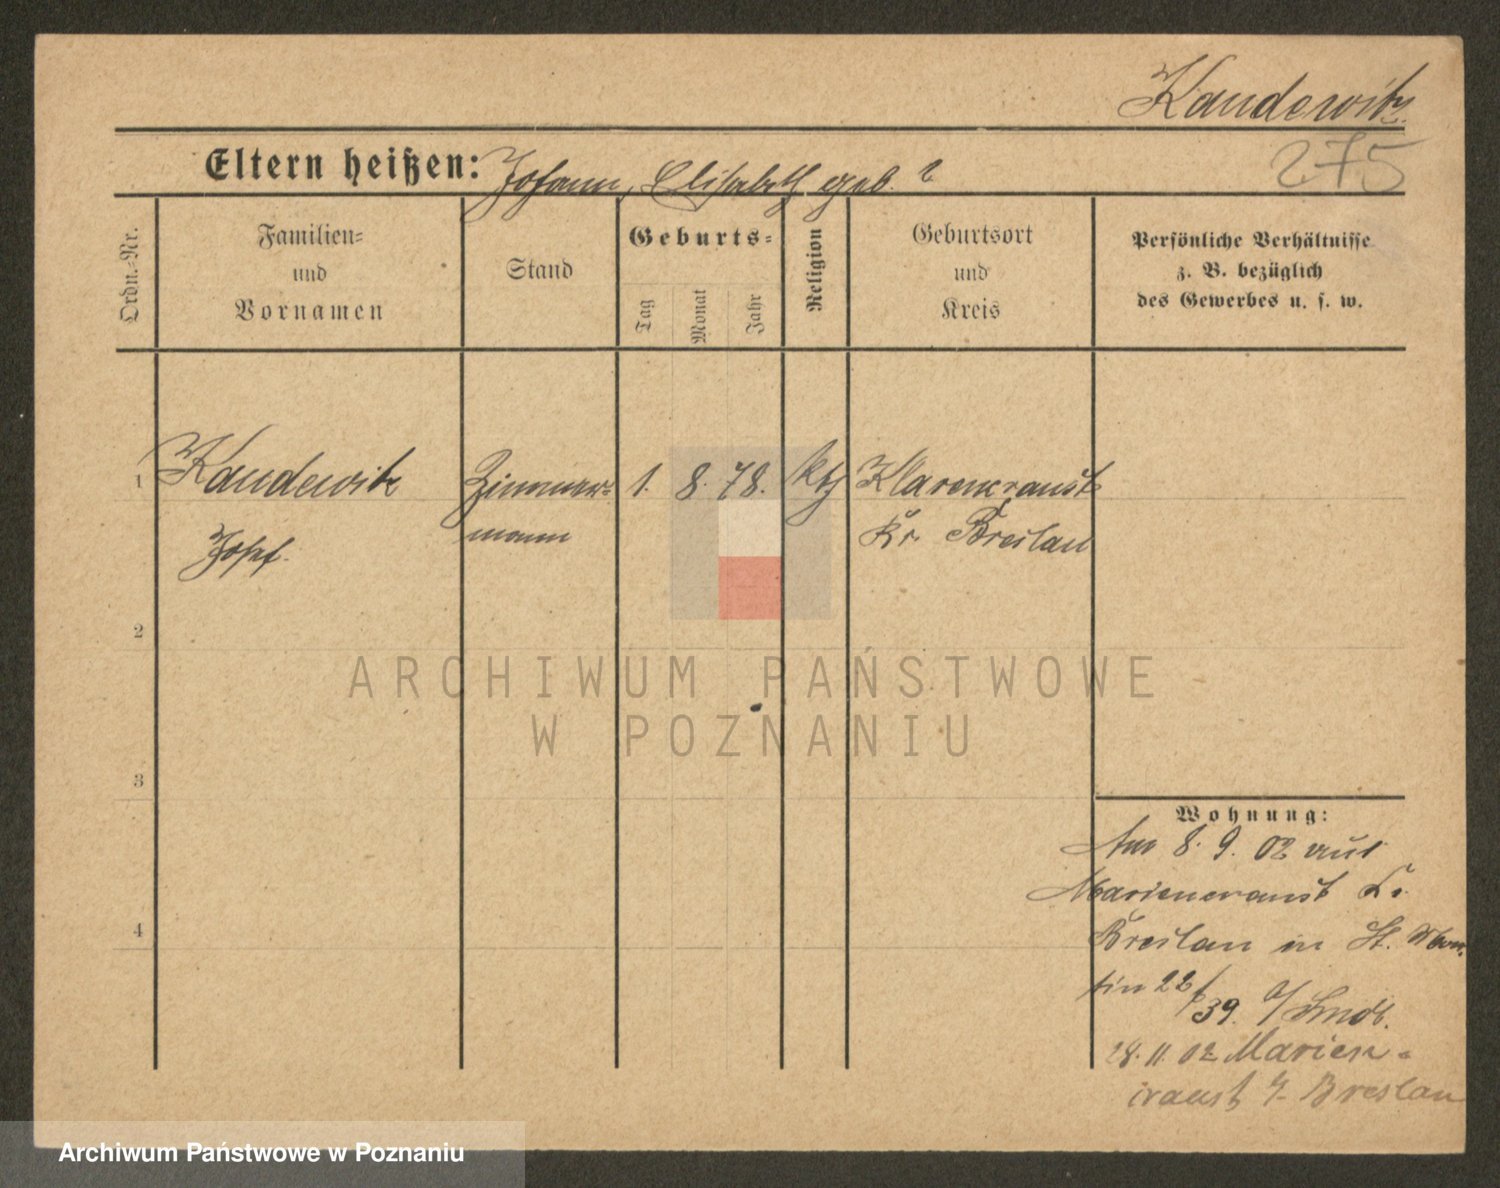 Kandewitz
275
Eltern heißen: Johann, Elisabeth geb. ?
Ordn.=Nr.
Familien=
und
Vornamen
Stand
Geburts=
Tag
Monat
Jahr
Religion
Geburtsort
und
Kreis
Persönliche Verhältnisse
z. B. bezüglich
des Gewerbes u. s. w.
1 Kandewitz Zimmer= 1. 8. 78. kth Klarencranst
Josef mann Kr. Breslau
2
3
4
Wohnung:
Am 8. 9. 02 aus
Mariencranst Kr.
Breslau in St. Mar
tin 22
39.
28. 11. 02 Marien=
cranst Breslau
ARCHIWUM PAŃSTWOWE
W POZNANIU
Archiwum Państwowe w Poznaniu